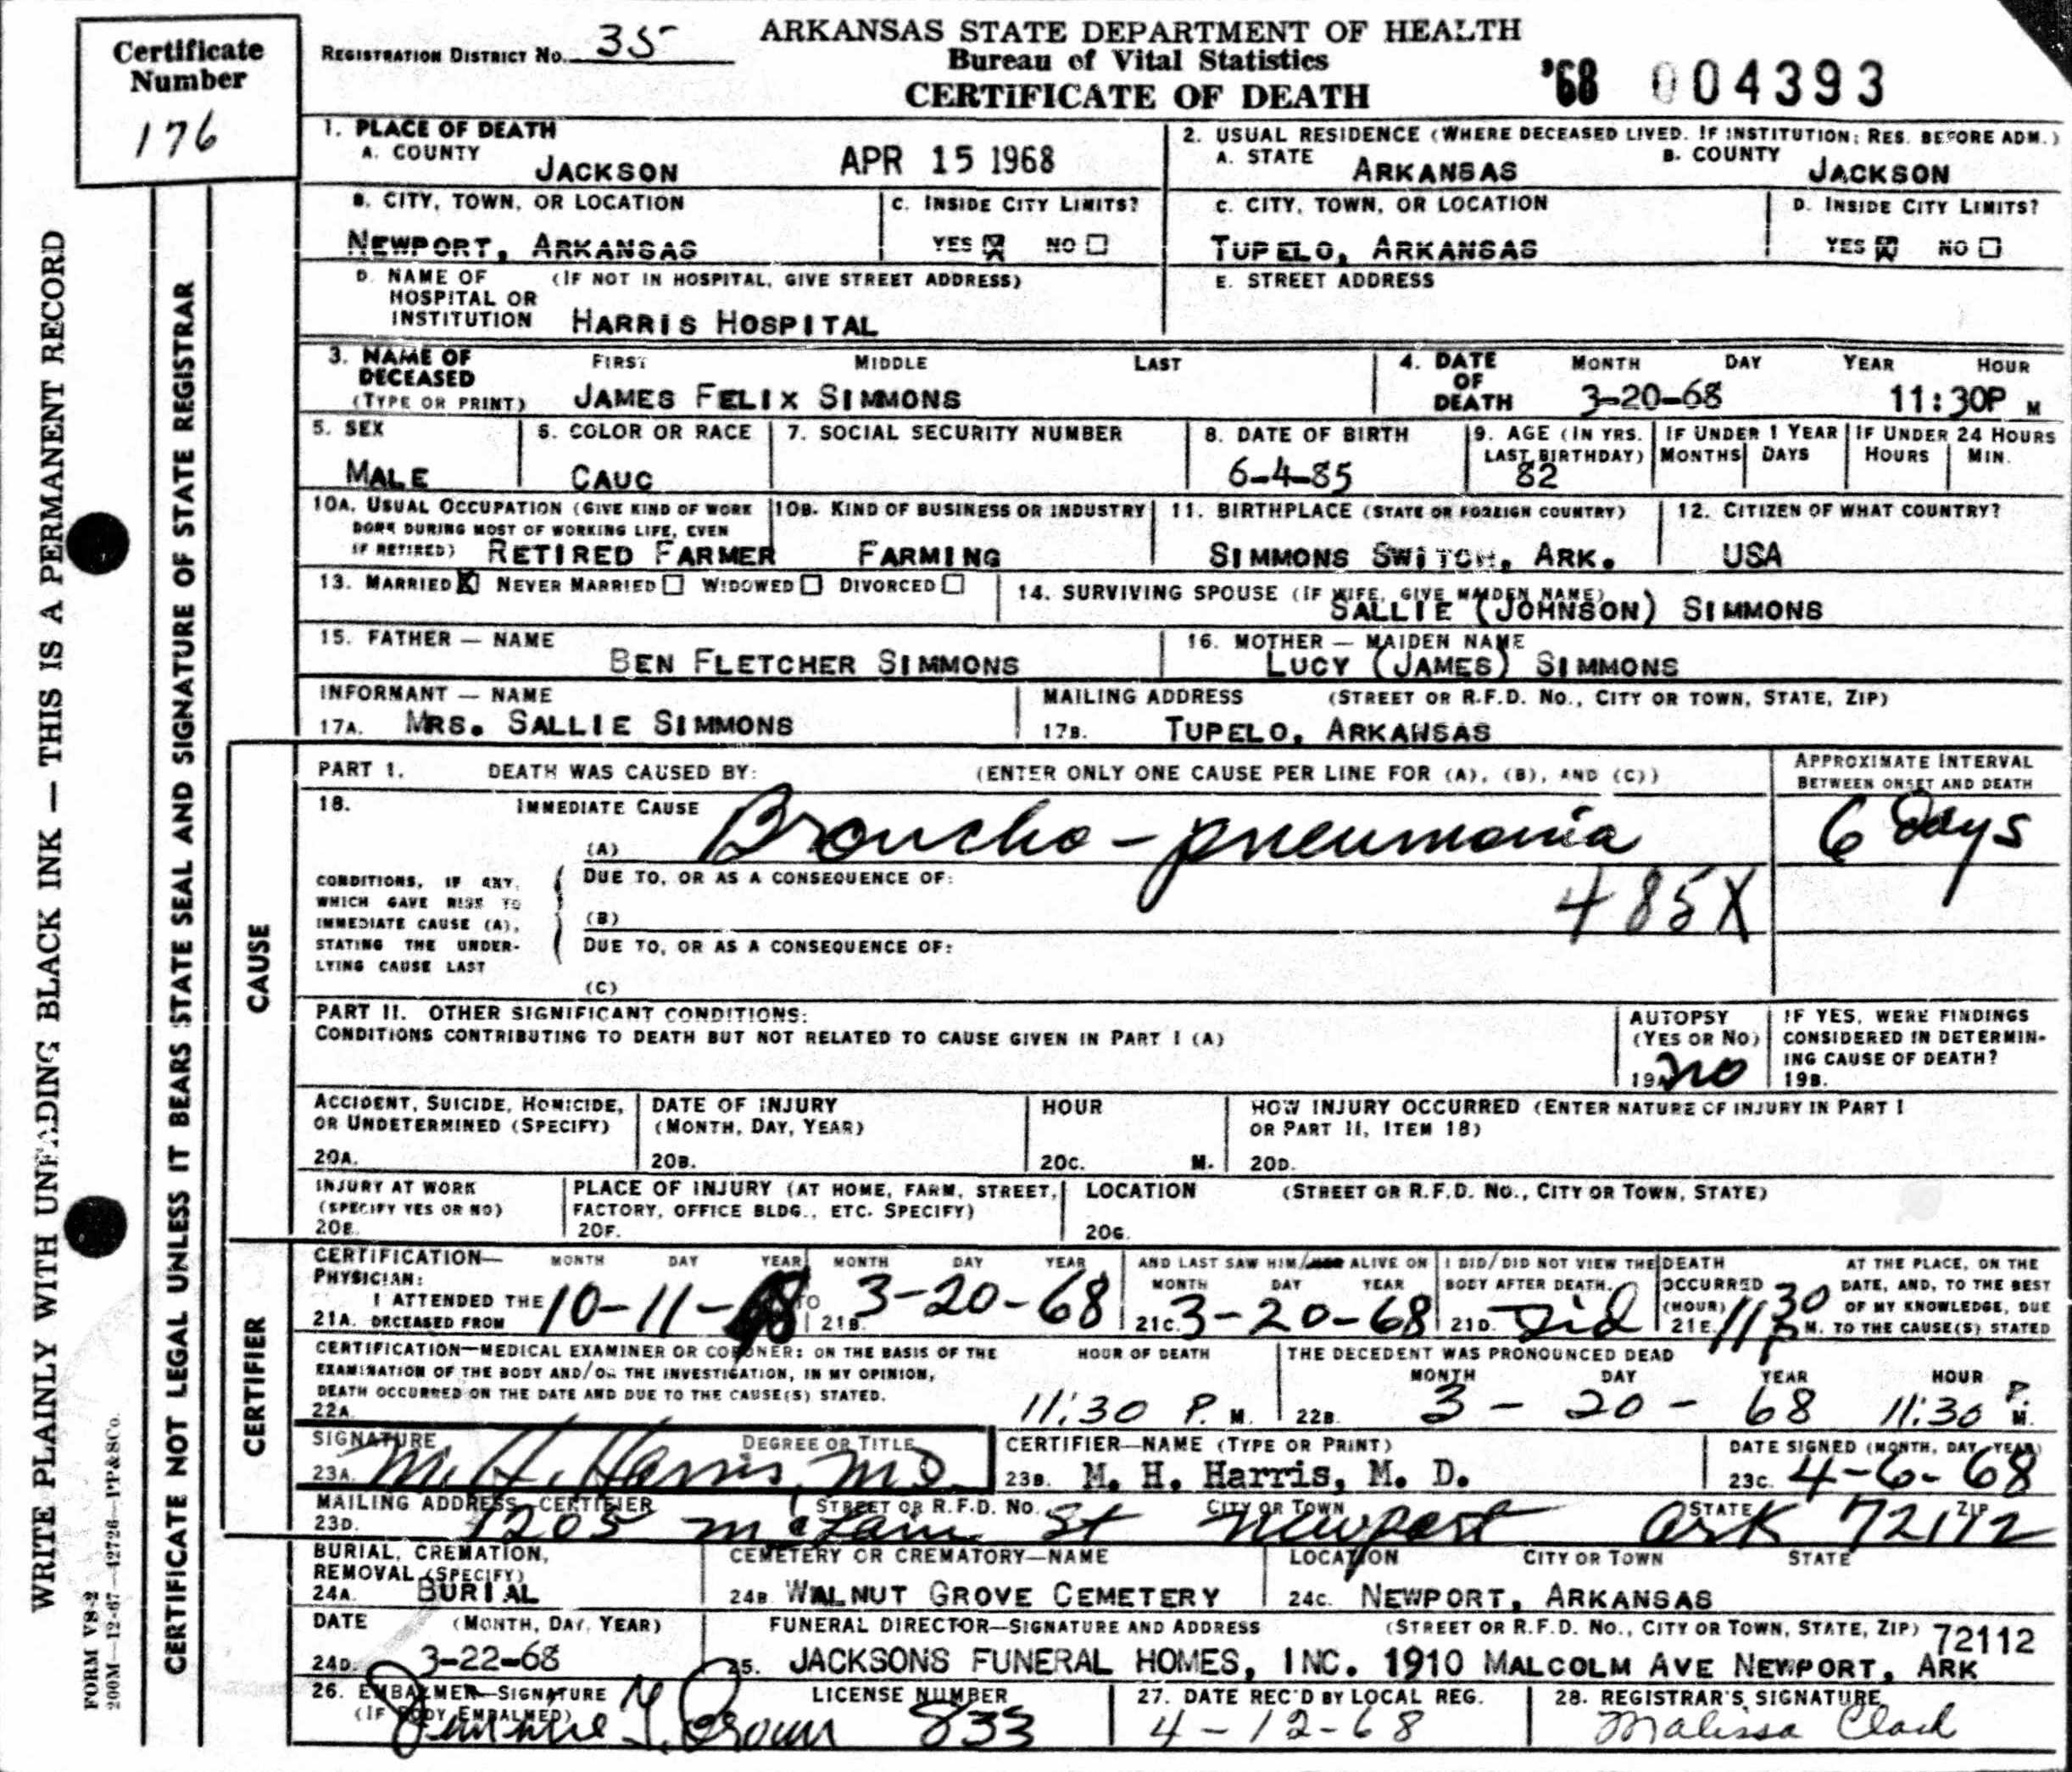 Certificate Number
176
REGISTRATION DISTRICT NO. 35
ARKANSAS STATE DEPARTMENT OF HEALTH
Bureau of Vital Statistics
CERTIFICATE OF DEATH
'68 004393
1. PLACE OF DEATH
A. COUNTY JACKSON
APR 15 1968
2. USUAL RESIDENCE (WHERE DECEASED LIVED. IF INSTITUTION: RES. BEFORE ADM.)
A. STATE ARKANSAS B. COUNTY JACKSON
B. CITY, TOWN, OR LOCATION
NEWPORT, ARKANSAS
C. INSIDE CITY LIMITS?
YES NO
C. CITY, TOWN, OR LOCATION
TUPELO, ARKANSAS
D. INSIDE CITY LIMITS?
YES NO
D. NAME OF HOSPITAL OR INSTITUTION (IF NOT IN HOSPITAL, GIVE STREET ADDRESS)
HARRIS HOSPITAL
E. STREET ADDRESS
3. NAME OF DECEASED (TYPE OR PRINT) FIRST MIDDLE LAST
JAMES FELIX SIMMONS
4. DATE OF DEATH MONTH DAY YEAR HOUR
3-20-68 11:30P M
5. SEX
MALE
6. COLOR OR RACE
CAUC
7. SOCIAL SECURITY NUMBER
8. DATE OF BIRTH
6-4-85
9. AGE (IN YRS. LAST BIRTHDAY)
82
IF UNDER 1 YEAR
MONTHS DAYS
IF UNDER 24 HOURS
HOURS MIN.
10A. USUAL OCCUPATION (GIVE KIND OF WORK DONE DURING MOST OF WORKING LIFE, EVEN IF RETIRED) RETIRED FARMER
10B. KIND OF BUSINESS OR INDUSTRY
FARMING
11. BIRTHPLACE (STATE OR FOREIGN COUNTRY)
SIMMONS SWITCH, ARK.
12. CITIZEN OF WHAT COUNTRY?
USA
13. MARRIED NEVER MARRIED WIDOWED DIVORCED
14. SURVIVING SPOUSE (IF WIFE, GIVE MAIDEN NAME)
SALLIE (JOHNSON) SIMMONS
15. FATHER — NAME
BEN FLETCHER SIMMONS
16. MOTHER — MAIDEN NAME
LUCY (JAMES) SIMMONS
INFORMANT — NAME
17A. MRS. SALLIE SIMMONS
MAILING ADDRESS (STREET OR R.F.D. NO., CITY OR TOWN, STATE, ZIP)
17B. TUPELO, ARKANSAS
PART 1. DEATH WAS CAUSED BY: (ENTER ONLY ONE CAUSE PER LINE FOR (A), (B), AND (C))
APPROXIMATE INTERVAL BETWEEN ONSET AND DEATH
18. IMMEDIATE CAUSE
(A) Broncho-pneumonia
6 Days
CONDITIONS, IF ANY, WHICH GAVE RISE TO IMMEDIATE CAUSE (A), STATING THE UNDERLYING CAUSE LAST
DUE TO, OR AS A CONSEQUENCE OF:
485X
(B)
DUE TO, OR AS A CONSEQUENCE OF:
(C)
PART II. OTHER SIGNIFICANT CONDITIONS:
CONDITIONS CONTRIBUTING TO DEATH BUT NOT RELATED TO CAUSE GIVEN IN PART I (A)
AUTOPSY (YES OR NO)
19A. no
IF YES, WERE FINDINGS CONSIDERED IN DETERMINING CAUSE OF DEATH?
19B.
ACCIDENT, SUICIDE, HOMICIDE, OR UNDETERMINED (SPECIFY)
20A.
DATE OF INJURY (MONTH, DAY, YEAR)
20B.
HOUR
20C. M.
HOW INJURY OCCURRED (ENTER NATURE OF INJURY IN PART I OR PART II, ITEM 18)
20D.
INJURY AT WORK (SPECIFY YES OR NO)
20E.
PLACE OF INJURY (AT HOME, FARM, STREET, FACTORY, OFFICE BLDG., ETC. SPECIFY)
20F.
LOCATION (STREET OR R.F.D. NO., CITY OR TOWN, STATE)
20G.
CERTIFICATION— PHYSICIAN: I ATTENDED THE DECEASED FROM
21A. MONTH DAY YEAR 10-11-68 TO
21B. MONTH DAY YEAR 3-20-68
AND LAST SAW HIM/HER ALIVE ON
MONTH DAY YEAR
21C. 3-20-68
I DID/DID NOT VIEW THE BODY AFTER DEATH.
21D. Did
DEATH OCCURRED (HOUR)
21E. 11:30 P M.
AT THE PLACE, ON THE DATE, AND, TO THE BEST OF MY KNOWLEDGE, DUE TO THE CAUSE(S) STATED
CERTIFICATION—MEDICAL EXAMINER OR CORONER: ON THE BASIS OF THE EXAMINATION OF THE BODY AND/OR THE INVESTIGATION, IN MY OPINION, DEATH OCCURRED ON THE DATE AND DUE TO THE CAUSE(S) STATED.
22A.
HOUR OF DEATH
11:30 P. M.
THE DECEDENT WAS PRONOUNCED DEAD
MONTH DAY YEAR HOUR
22B. 3 - 20 - 68 11:30 P. M.
SIGNATURE DEGREE OR TITLE
23A. M. H. Harris, M.D.
CERTIFIER—NAME (TYPE OR PRINT)
23B. M. H. Harris, M. D.
DATE SIGNED (MONTH, DAY, YEAR)
23C. 4-6-68
MAILING ADDRESS—CERTIFIER STREET OR R.F.D. NO. CITY OR TOWN STATE ZIP
23D. 1205 McLain St Newport Ark 72112
BURIAL, CREMATION, REMOVAL (SPECIFY)
24A. BURIAL
CEMETERY OR CREMATORY—NAME
24B. WALNUT GROVE CEMETERY
LOCATION CITY OR TOWN STATE
24C. NEWPORT, ARKANSAS
DATE (MONTH, DAY, YEAR)
24D. 3-22-68
FUNERAL DIRECTOR—SIGNATURE AND ADDRESS (STREET OR R.F.D. NO., CITY OR TOWN, STATE, ZIP) 72112
25. JACKSONS FUNERAL HOMES, INC. 1910 MALCOLM AVE NEWPORT, ARK
26. EMBALMER—SIGNATURE (IF BODY EMBALMED) LICENSE NUMBER
833
27. DATE REC'D BY LOCAL REG.
4-12-68
28. REGISTRAR'S SIGNATURE
Malissa Clark
CAUSE
CERTIFIER
WRITE PLAINLY WITH UNFADING BLACK INK — THIS IS A PERMANENT RECORD
CERTIFICATE NOT LEGAL UNLESS IT BEARS STATE SEAL AND SIGNATURE OF STATE REGISTRAR
FORM VS-2
200M—12-67—42726—PP&SCo.